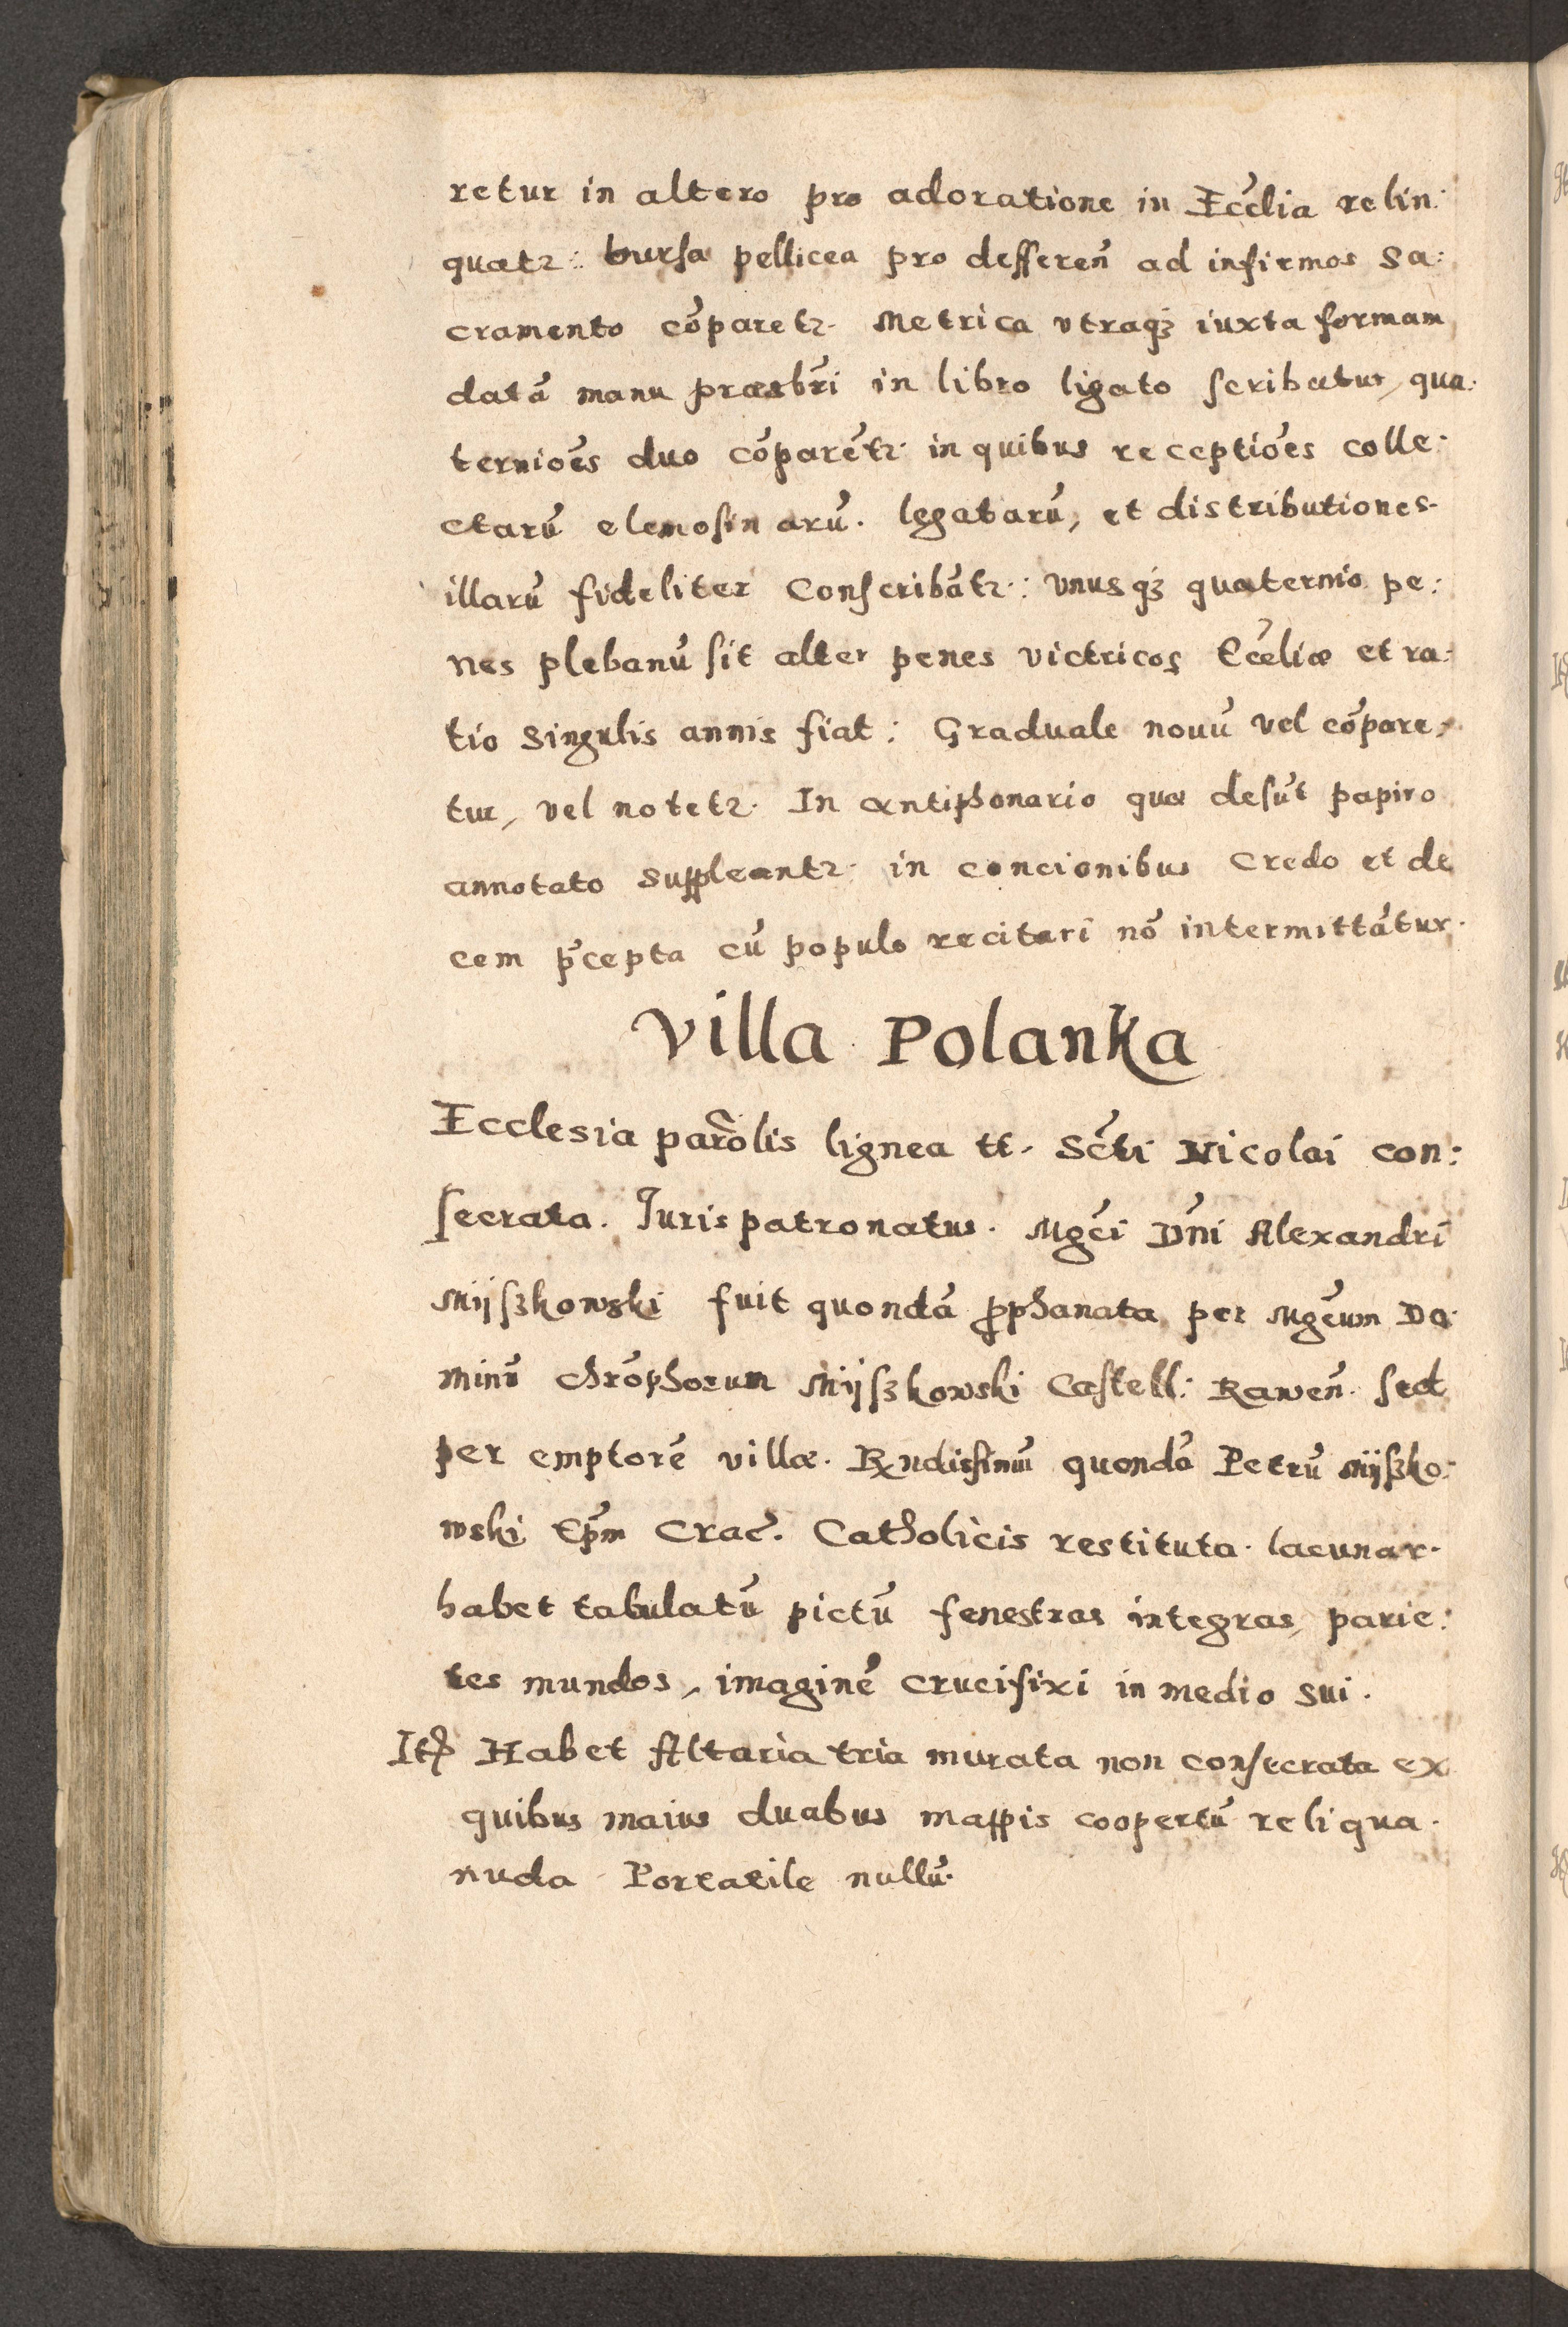 retur in altero pro adoratione in Eccĺia relin:
quatꝛ: bursa pellicea pro defferen̄ ad infirmos Sa:
cramento cōparetꝛ. Metrica vtraqꝫ iuxta formam
datā manu præsbr̄i in libro ligato scribatur, qua:
ternioēs duo cōparētꝛ. in quibus receptioēs colle:
ctarū elemosinarū. legatarū, et distributiones.
illarū fideliter Conscribātꝛ: vnusqꝫ quaternio pe:
nes plebanū sit alter penes victricos Eccĺiæ et ra:
tio singulis annis fiat: Graduale nouū vel cōpare,
tur, vel notetꝛ. In antiphonario quæ desūt papiro
annotato suppleantꝛ. in concionibus Credo et de
cem p̄cepta cū populo recitari nō intermittātur.
Villa Polanka
Ecclesia parōlis lignea tt. Sc̄ti Nicolai con:
secrata. Juris patronatus. Mgc̄i Dn̄i Alexandri
Mijszkowski fuit quondā ꝓphanata per Mgc̄um Do:
minū chrōphorum Mijszkowski Castell: Rawen̄. sed
per emptorē villæ. Rx̄ndissimū quondā Petrū Mijszko:
wski Ep̄m Crac̄. Catholicis restituta. lacunar.
habet tabulatū pictū fenestras integras, parie:
tes mundos, imaginē Crucifixi in medio sui.
Itꝭ Habet Altaria tria murata non consecrata ex
quibus maius duabus mappis coopertū reliqua.
nuda Portatile nullū.